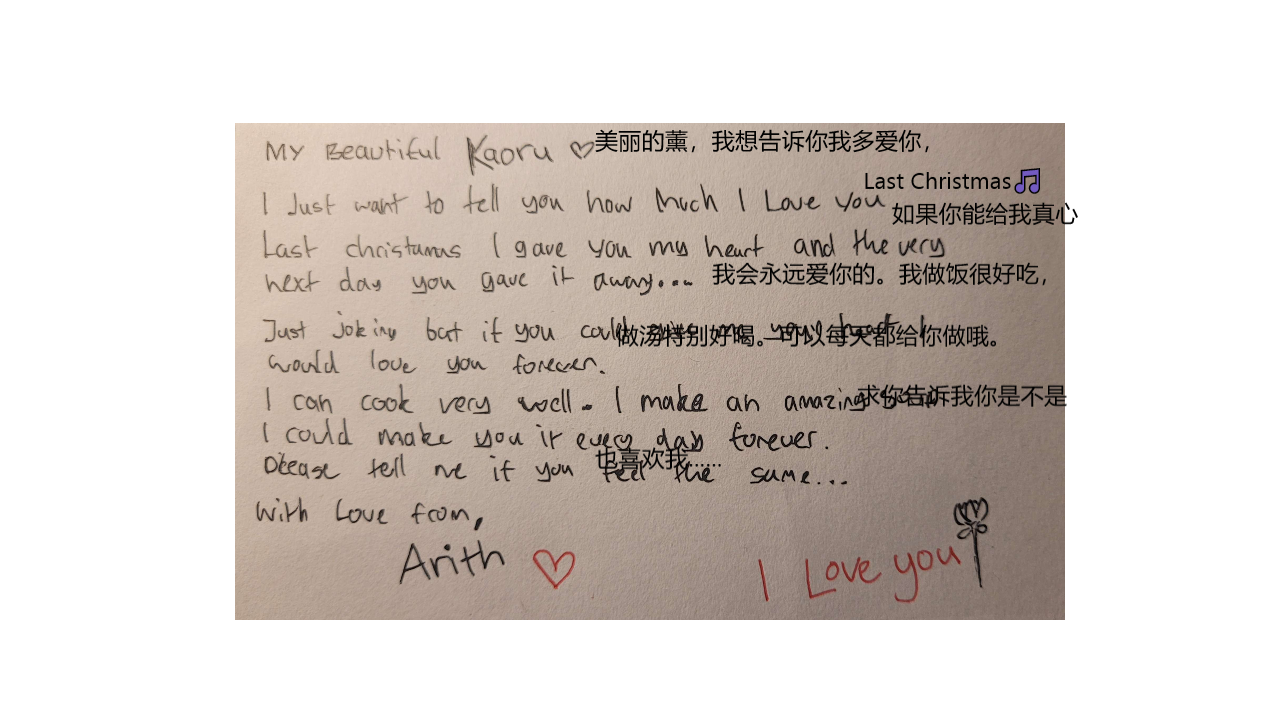 My Beautiful Kaoru ♡
美丽的薰，我想告诉你我多爱你，
Last Christmas🎵
I Just want to tell you how Much I Love you
如果你能给我真心
Last christamas I gave you my heart and the very
next day you gave it away...
我会永远爱你的。我做饭很好吃，
Just joking but if you could give me your heart I
做汤特别好喝。可以每天都给你做哦。
would love you forever.
I can cook very well. I make an amazing
求你告诉我你是不是
I could make you it every day forever.
也喜欢我......
Please tell me if you feel the same...
With Love from,
Arith ♡
I Love you